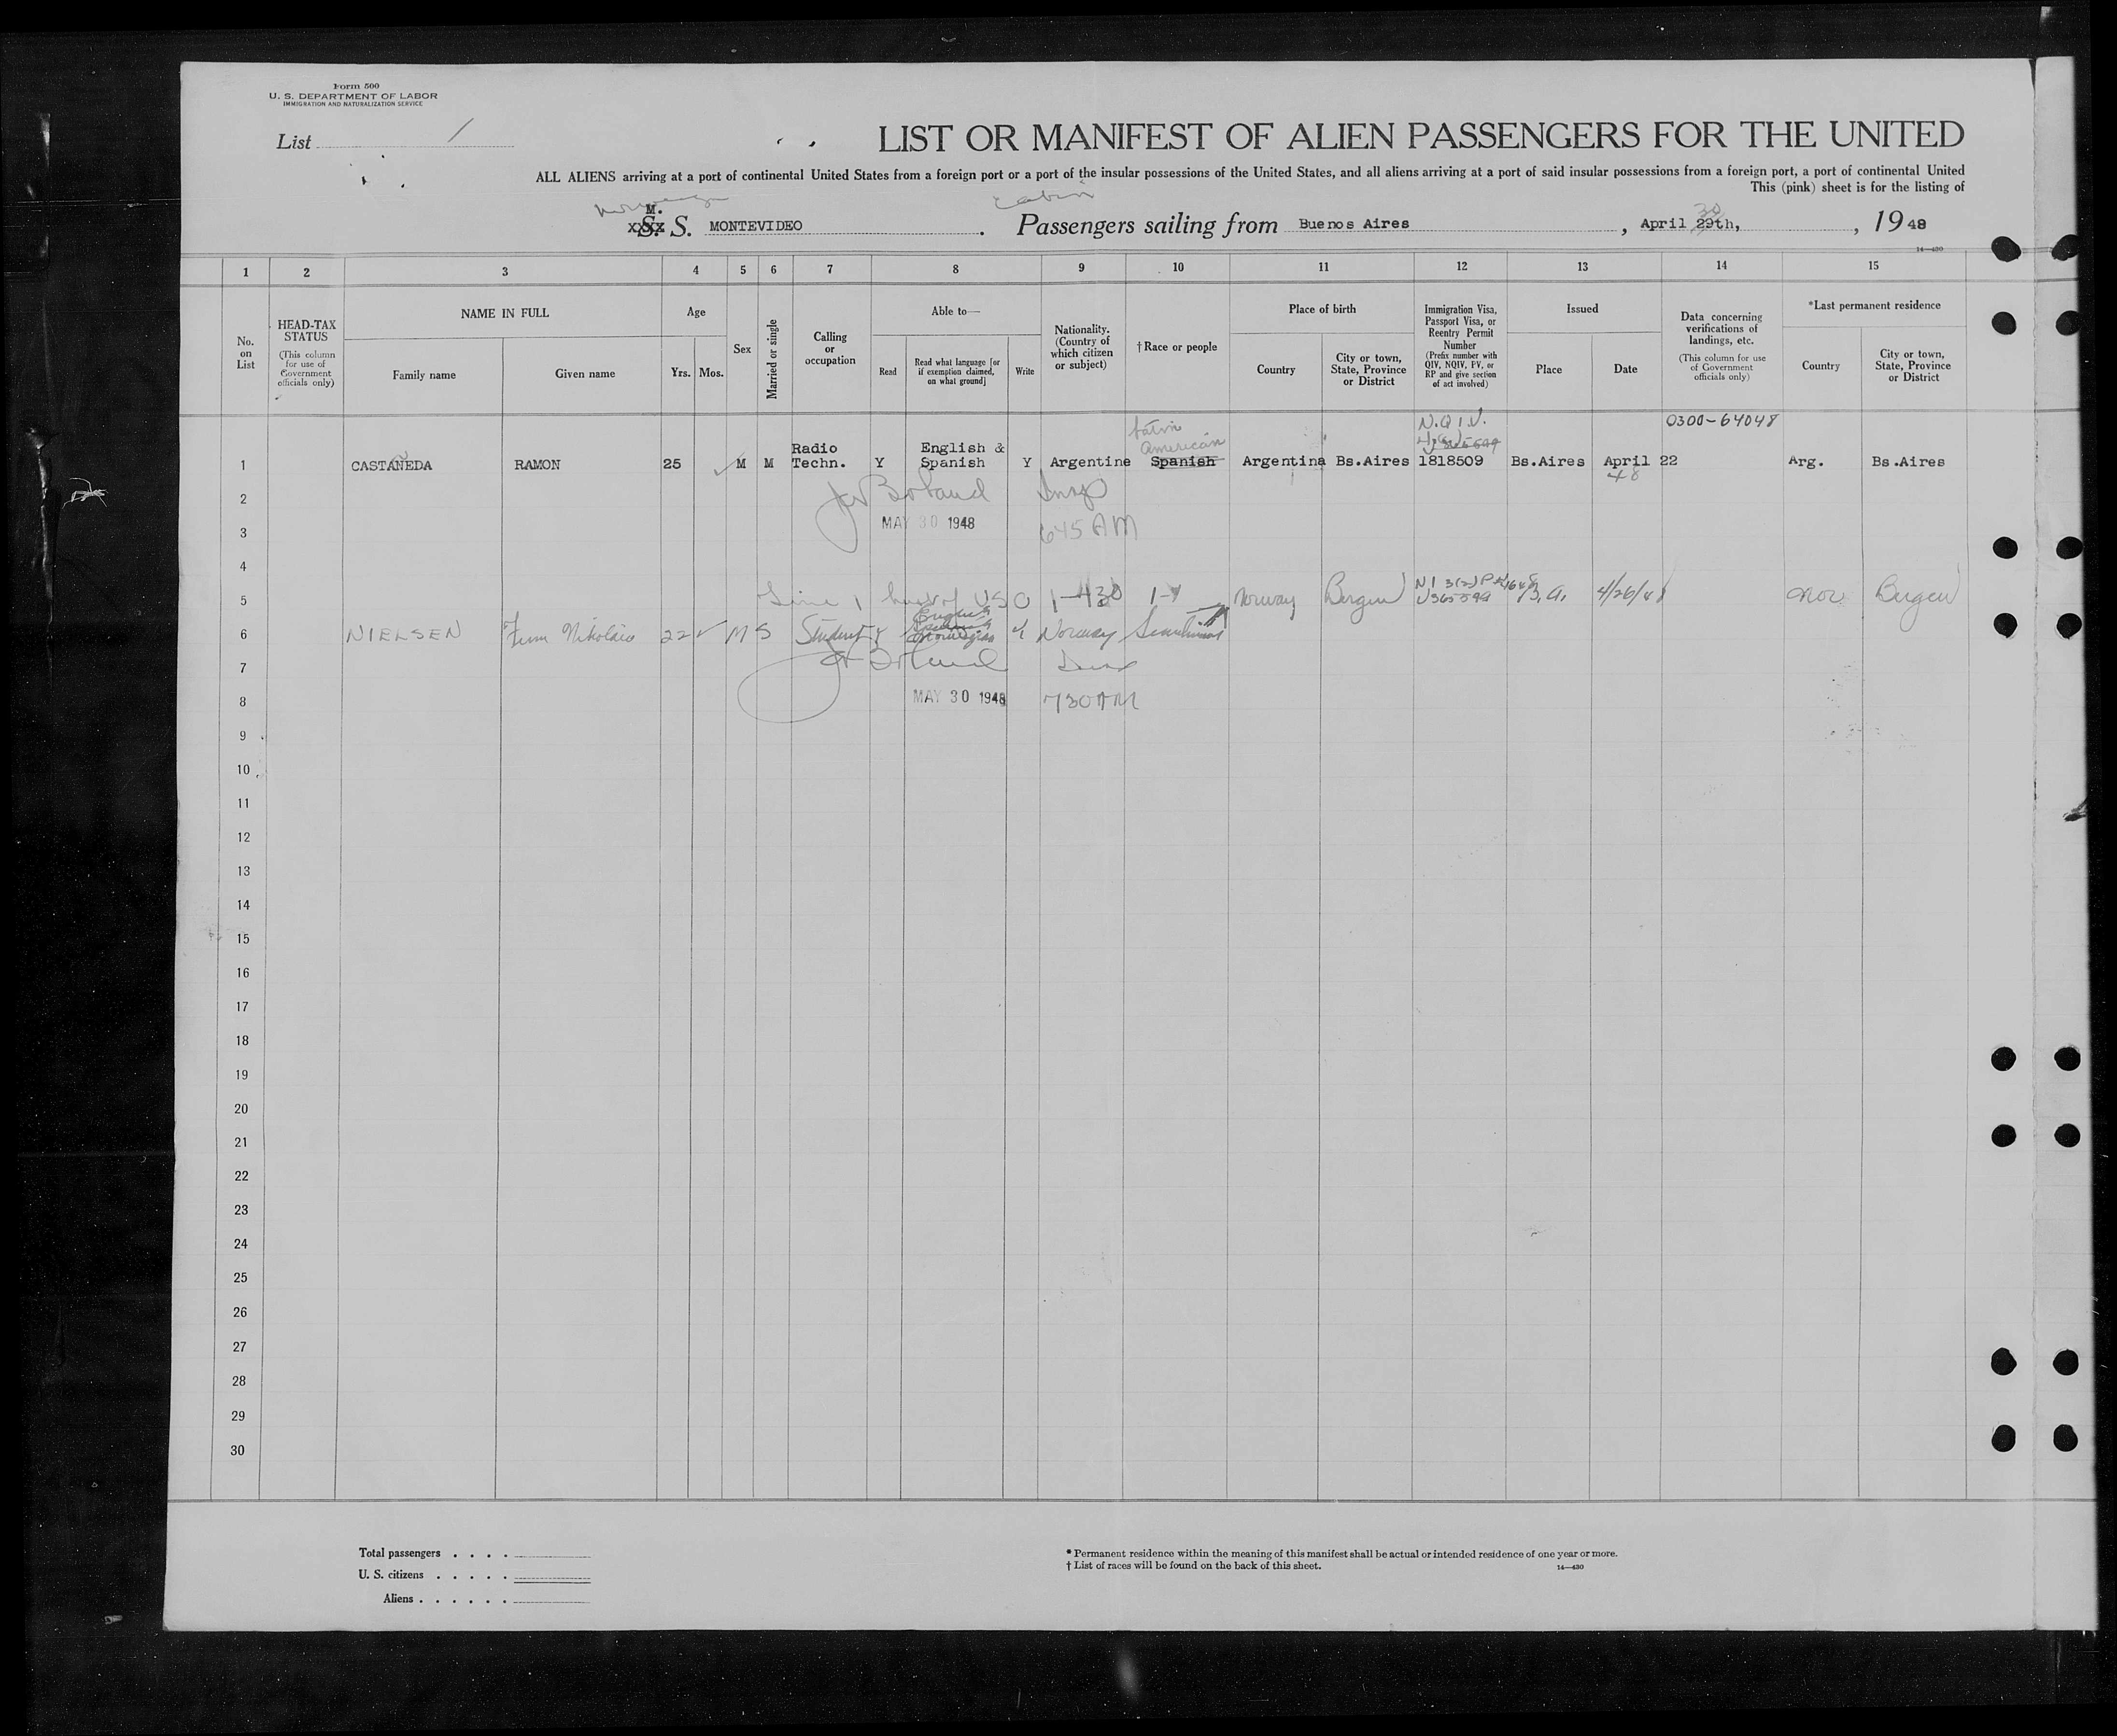 Form 500
U. S. DEPARTMENT OF LABOR
IMMIGRATION AND NATURALIZATION SERVICE
List 1
LIST OR MANIFEST OF ALIEN PASSENGERS FOR THE UNITED
ALL ALIENS arriving at a port of continental United States from a foreign port or a port of the insular possessions of the United States, and all aliens arriving at a port of said insular possessions from a foreign port, a port of continental United
This (pink) sheet is for the listing of
Cabin
M.
S. S. MONTEVIDEO . Passengers sailing from Buenos Aires , April 29th, 30 , 1948
14—430
1 2 3 4 5 6 7 8 9 10 11 12 13 14 15
No. on List
HEAD-TAX STATUS
(This column for use of Government officials only)
NAME IN FULL
Family name
Given name
Age
Yrs. Mos.
Sex
Married or single
Calling or occupation
Able to—
Read
Read what language [or if exemption claimed, on what ground]
Write
Nationality. (Country of which citizen or subject)
†Race or people
Place of birth
Country
City or town, State, Province or District
Immigration Visa, Passport Visa, or Reentry Permit Number
(Prefix number with QIV, NQIV, PV, or RP and give section of act involved)
Issued
Place
Date
Data concerning verifications of landings, etc.
(This column for use of Government officials only)
*Last permanent residence
Country
City or town, State, Province or District
Latin American N.Q.I.V. 0300-64048
1 CASTAÑEDA RAMON 25 M M Radio Techn. Y English & Spanish Y Argentine Spanish Argentina Bs.Aires 1818509 Bs.Aires April 22 48 Arg. Bs.Aires
2 Borland Insp
3 MAY 30 1948 645 AM
4
5 Line 1 1-430 Norway Bergen B.A. 4/26/48 Nor Bergen
6 NIELSEN Finn Nikolai 22 M S Student Y English Spanish Norwegian Y Norway Scandinavian
7 Borland Insp
8 MAY 30 1948 730 AM
9
10
11
12
13
14
15
16
17
18
19
20
21
22
23
24
25
26
27
28
29
30
Total passengers . . . .
U. S. citizens . . . . .
Aliens . . . . . .
* Permanent residence within the meaning of this manifest shall be actual or intended residence of one year or more.
† List of races will be found on the back of this sheet.
14—430